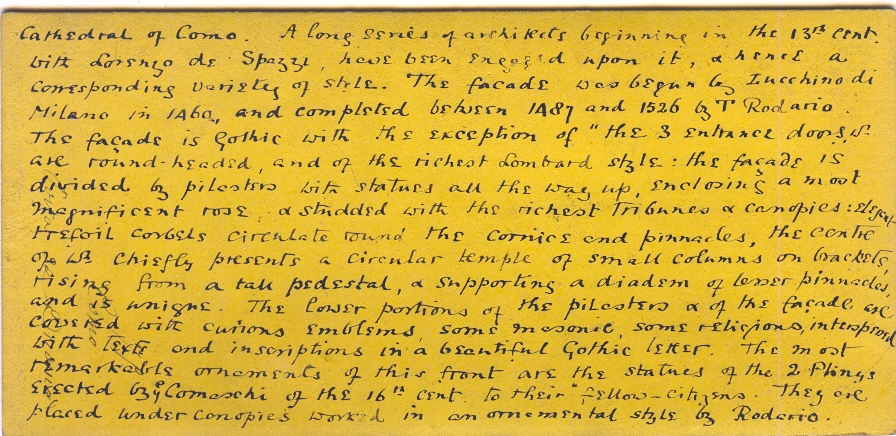 Cathedral of Como. A long series of architects beginning in the 13th cent.
with Lorenzo de Spazzi, have been engaged upon it, & hence a
corresponding variety of style. The facade was begun by Lucchino di
Milano in 1460, and completed between 1487 and 1526 by T Rodario
The façade is Gothic with the exception of "the 3 entrance doors, wh.
are round-headed, and of the richest Lombard style: the façade is
divided by pilasters with statues all the way up, enclosing a most
magnificent rose, & studded with the richest Tribunes & canopies: elegant
trefoil corbels circulate round the cornice and pinnacles, the centre
of wh chiefly presents a circular temple of small columns on brackets
rising from a tall pedestal, & supporting a diadem of lesser pinnacles,
and is unique. The lower portions of the pilasters & of the façade are
covered with curious emblems some masonic, some religious, interspersed
with texts and inscriptions in a beautiful Gothic letter. The most
remarkable ornaments of this front are the statues of the 2 Plinys
erected by ye Comaschi of the 16th cent. to their "fellow-citizens. They are
placed under canopies worked in an ornamental style by Rodario.